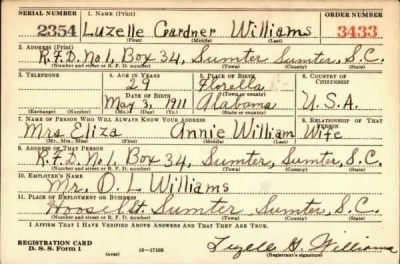 SERIAL NUMBER 1. NAME (Print) ORDER NUMBER
2354 Luzelle Gardner Williams 3433
(First) (Middle) (Last)
2. ADDRESS (Print)
R.F.D. No 1, Box 34, Sumter Sumter, S.C.
(Number and street or R. F. D. number) (Town) (County) (State)
3. TELEPHONE 4. AGE IN YEARS 5. PLACE OF BIRTH 6. COUNTRY OF CITIZENSHIP
29 Florella
DATE OF BIRTH (Town or county)
May 3, 1911 Alabama U.S.A.
(Exchange) (Number) (Mo.) (Day) (Yr.) (State or country)
7. NAME OF PERSON WHO WILL ALWAYS KNOW YOUR ADDRESS 8. RELATIONSHIP OF THAT PERSON
Mrs Eliza Annie William Wife
(Mr., Mrs., Miss) (First) (Middle) (Last)
9. ADDRESS OF THAT PERSON
R.F.D. No 1, Box 34, Sumter, Sumter, S.C.
(Number and street or R. F. D. number) (Town) (County) (State)
10. EMPLOYER'S NAME
Mr. O. L. Williams
11. PLACE OF EMPLOYMENT OR BUSINESS
St. Sumter Sumter, S.C.
(Number and street or R. F. D. number) (Town) (County) (State)
I AFFIRM THAT I HAVE VERIFIED ABOVE ANSWERS AND THAT THEY ARE TRUE.
REGISTRATION CARD
D. S. S. Form 1 (over) 16-17105 Luzelle G. Williams
(Registrant's signature)